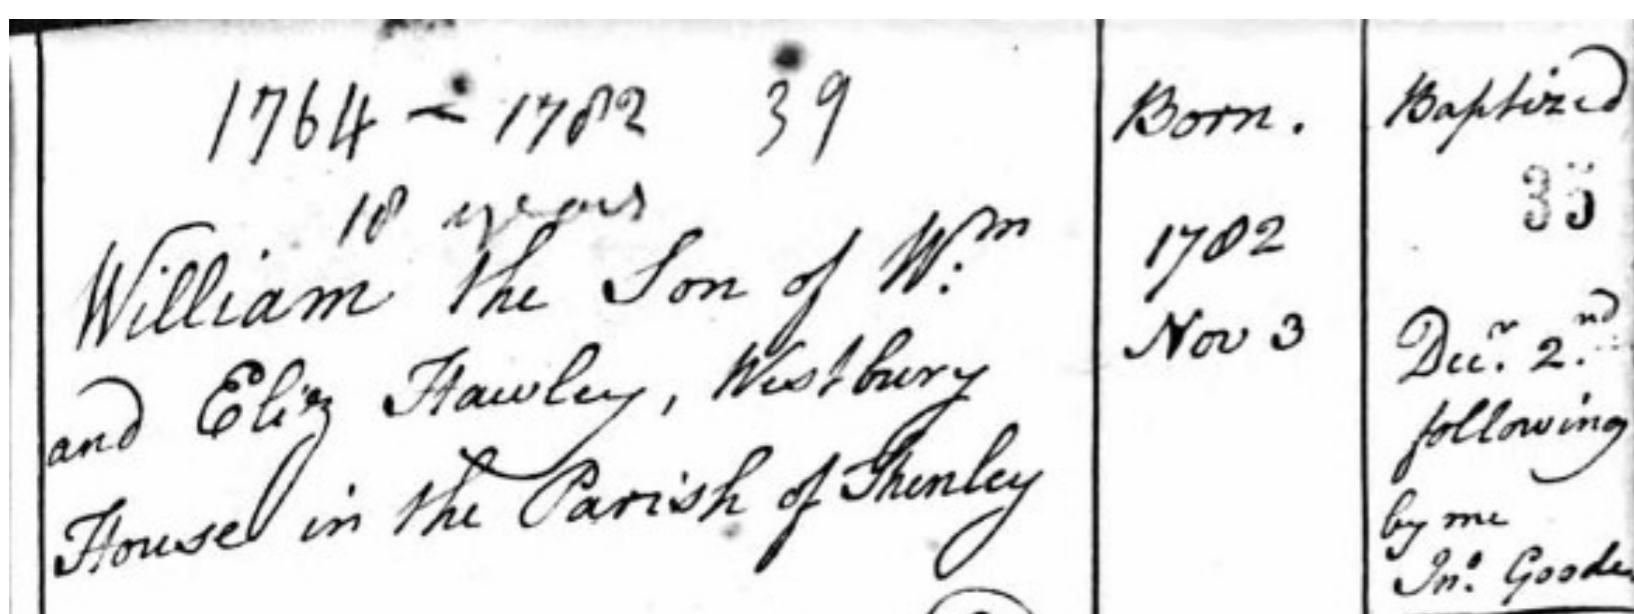 1764 – 1782 39
18 years
William the Son of Wm
and Eliz Hawley, Westbury
House in the Parish of Shenley
Born.
1782
Nov 3
Baptized
35
Decr. 2.nd
following
by me
Jno. Goode